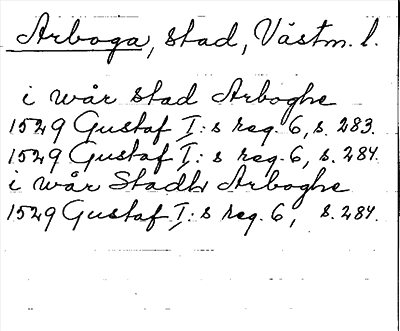 Arboga, stad, Västm. l.
i wår stad Arboghe
1529 Gustaf I:s reg. 6, s. 283.
1529 Gustaf I:s reg. 6, s. 284.
i wår Stadh Arboghe
1529 Gustaf I:s reg. 6, s. 284.